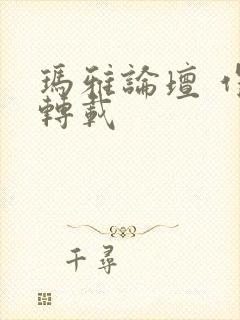 瑪雅論壇
轉載
千尋